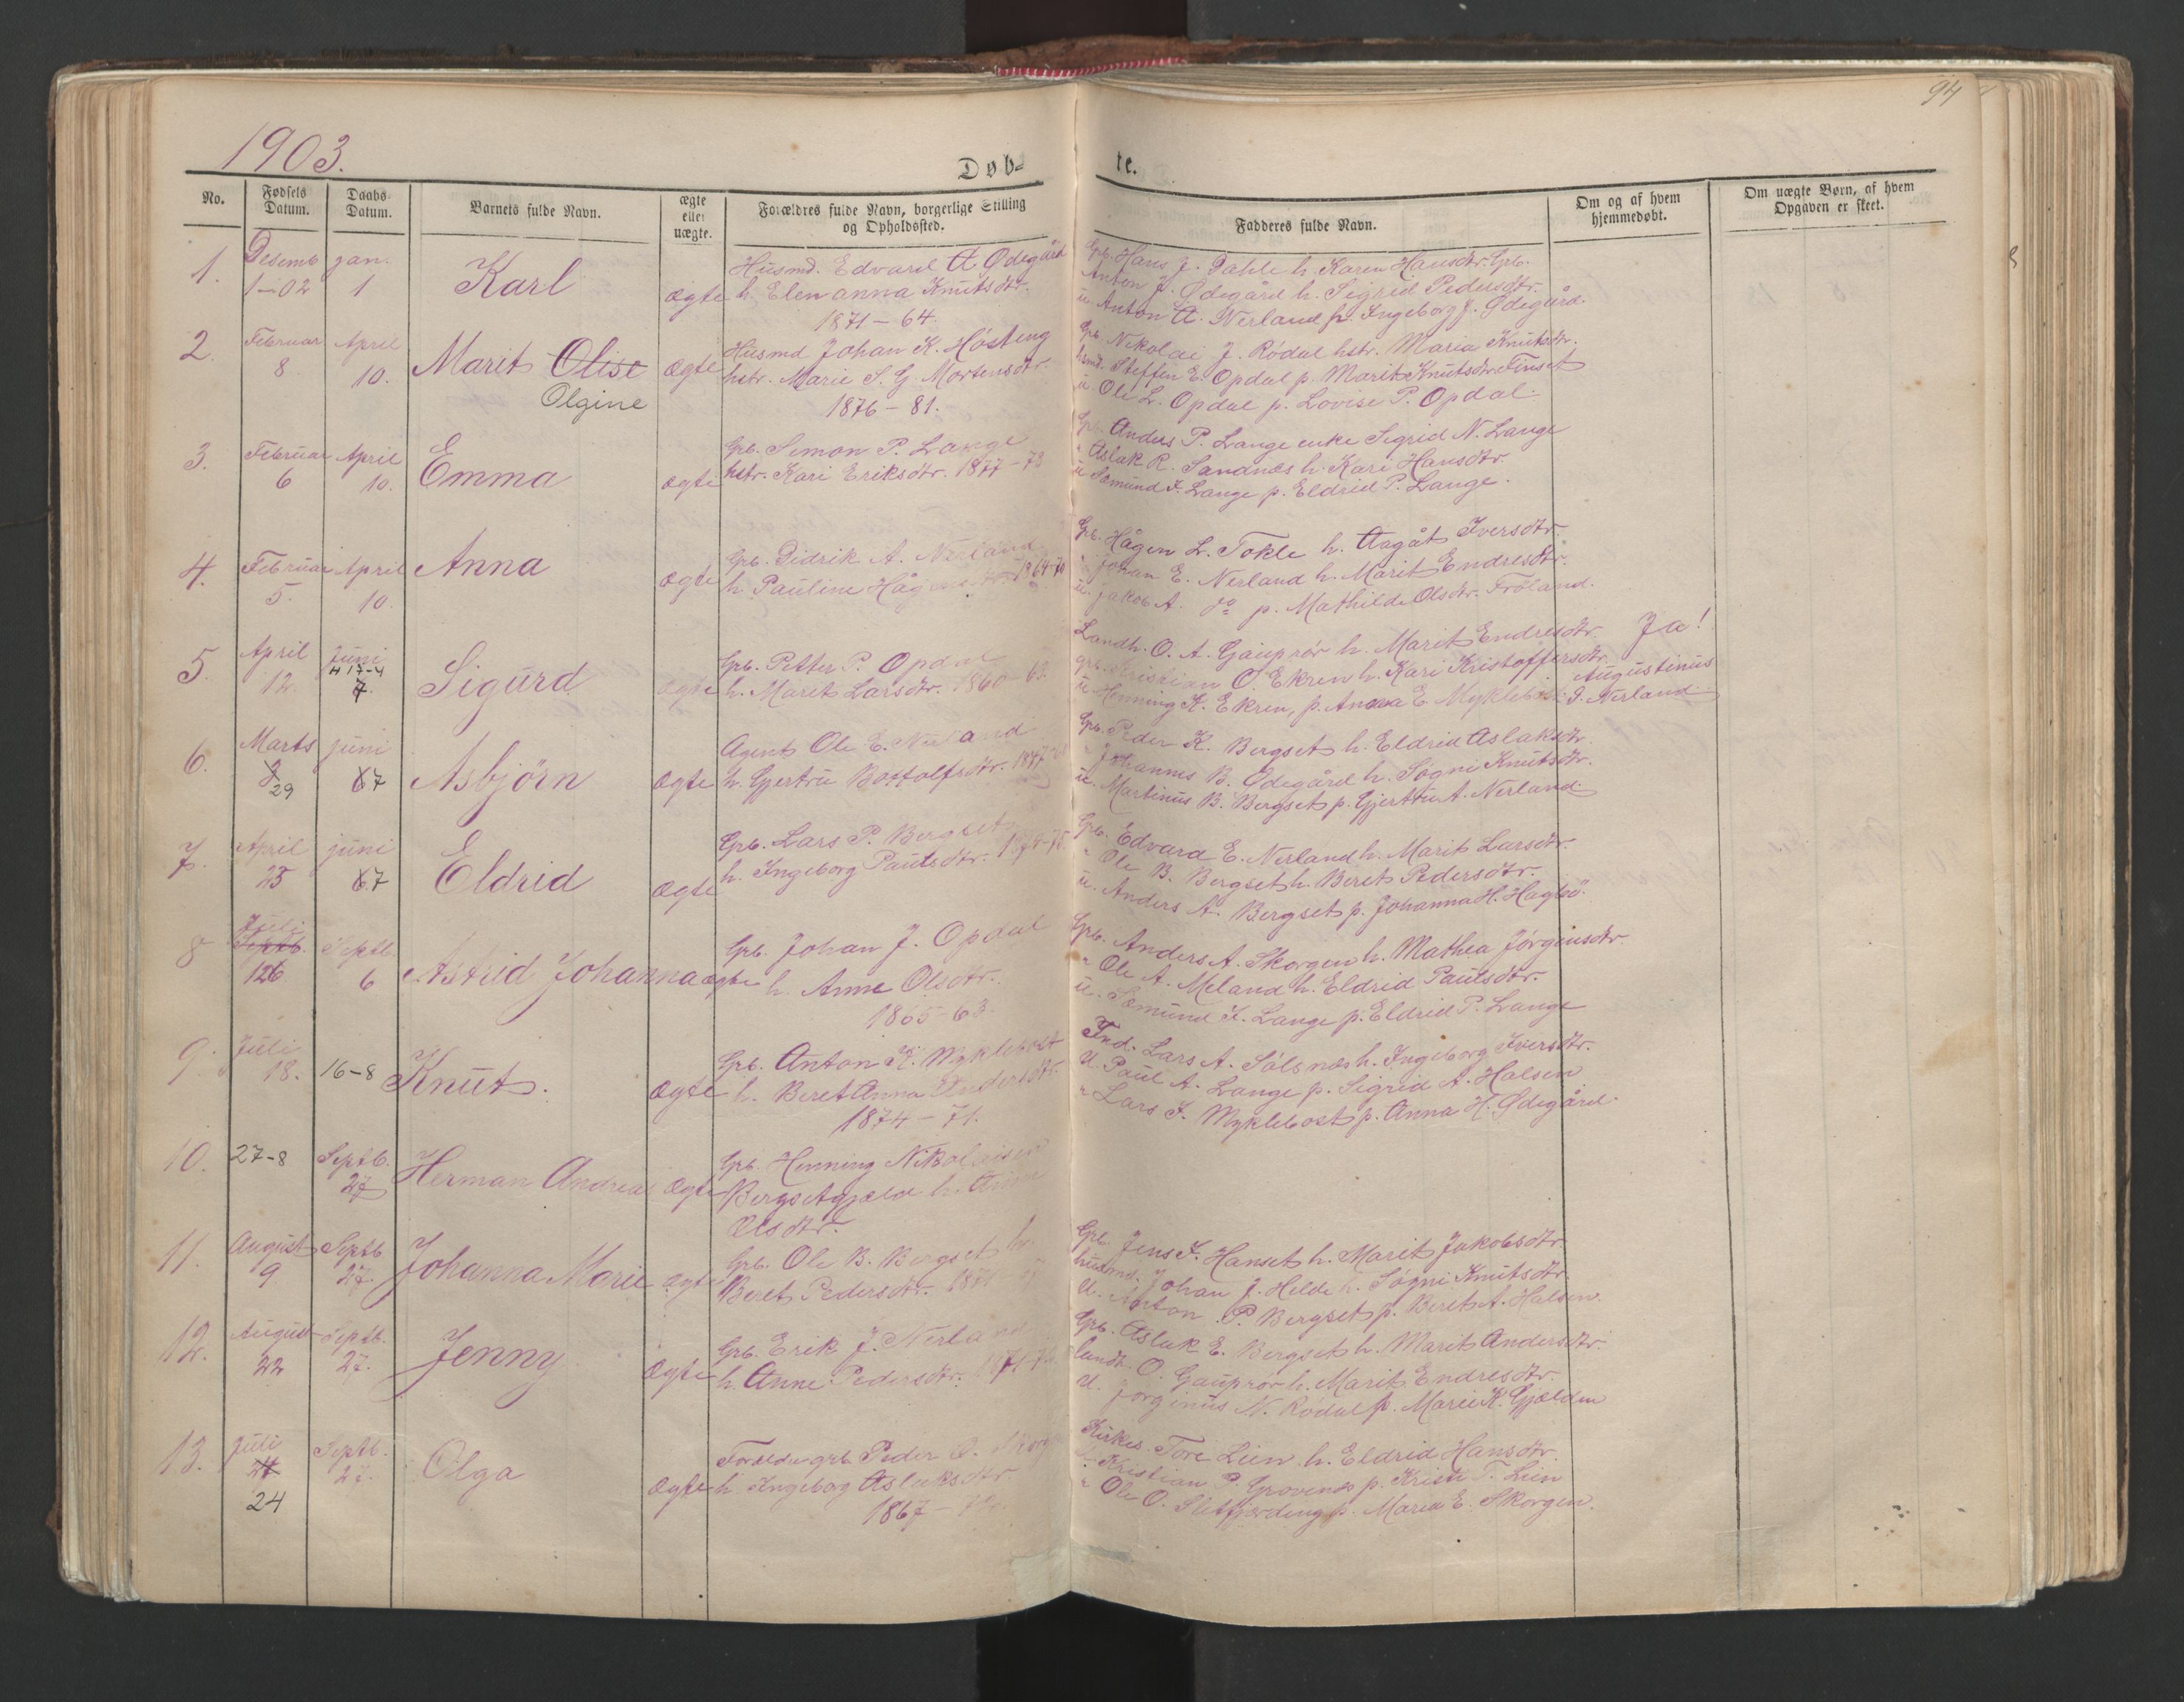 94
1903.
Døb-
te.
No.
Fødsels Datum.
Daabs- Datum.
Barnets fulde Navn.
ægte eller uægte.
Forældres fulde Navn, borgerlige Stilling og Opholdssted.
Fadderes fulde Navn.
Om og af hvem hjemmedøbt.
Om uægte Børn, af hvem Opgaven er skeet.
1. Desemb 1-02 jan. 1 Karl ægte
Husmd. Edvard A Ødegård
h. Elen anna Knutsdtr.
1871-64.
Grb. Hans J. Dahle h. Karen Hansdtr. Grb.
Anton J. Ødegård h. Sigrid Pedersdtr.
u. Anton A. Nerland p. Ingeborg J. Ødegård.
2. Februar 8 April 10. Marit Olise Olgine ægte
Husmd Johan K. Høsteng
hstr. Marie S. G Mortensdtr.
1876-81.
Grb. Nikolai J. Rødal hstr. Maria Knutsdtr.
husmd. Steffen E. Opdal p. Marit Knutsdtr Finset
u Ole L. Opdal p. Lovise P. Opdal.
3. Februar 6 April 10. Emma ægte
Grb. Simon P. Lange
hstr. Kari Eriksdtr. 1877-73
Grb Anders P. Lange enke Sigrid N. Lange
" Aslak R. Sandnes h. Kari Hansdtr.
u Semund F. Lange p. Eldrid P. Lange.
4. Februar 5. April 10. Anna ægte
Grb. Didrik A. Nerland
h. Pauline Hågensdtr. 1864-70
Grb. Hågen L. Tokle h. Aagåt Iversdtr.
" johan E. Nerland h. Marit Endresdtr.
u. jakob A. do p. Mathilde Olsdtr. Fröland.
5. April 12. Juni 17-4 7. Sigurd ægte
Grb. Petter P. Opdal
h. Marit Larsdtr. 1860-63.
Landh. O. A. Gauprör h. Marit Endresdtr
grb. Kristian O. Ekren h. Kari Kristoffersdtr.
u Henning K. Ekren, p. Anna E Myklebost.
Ja!
Augustinus
J. Nerland.
6. Marts 29 juni 7 Asbjörn ægte
Agent Ole E. Nerland
h. Gjertru Bottolfsdtr.
Grb. Peder K. Bergset h. Eldrid Aslaksdtr.
" Johannes B. Ødegård h. Sögni Knutsdtr.
u. Martinus B. Bergset p. Gjertru A. Nerland.
7. April 25 juni 7 Eldrid ægte
Grb. Lars P. Bergset
h. Ingeborg Paulsdtr.
Grb. Edvard E. Nerland h. Marit Larsdtr.
" Ole B. Bergset h. Beret Pedersdtr.
u. Anders A. Bergset p. Johanna H. Hagbö.
8 Juli Septb. 126 Septb. 6 Astrid Johanna ægte
Grb. Johan J. Opdal
h. Anne Olsdtr.
1865-63.
Grb. Anders A. Skorgen h. Mathea Jörginsdtr.
" Ole A. Meland h. Eldrid Paulsdtr.
u. Semund F. Lange p. Eldrid P. Lange
9. Juli 18. 16-8 Knut. ægte
Grb. Anton K. Myklebost
h. Beret Anna Andersdtr.
1874-71.
Ind. Lars A. Sölsnes h. Ingeborg Iversdtr.
U. Paul A. Lange p. Sigrid A. Halsen
" Lars I. Myklebost p. Anna H. Ødegård.
10. 27-8 Septb. 27 Herman Andreas ægte
Grb. Henning Nikolaisen
Bergsetgjæld h. Anne
Olsdtr.
11. August 9 Septb 27. Johanna Marie ægte
Grb. Ole B. Bergset h.
Beret Pedersdtr.
Grb. Jens F. Hanset h. Marit Jakobsdtr
husmd. Johan J. Helde h. Sögni Knutsdtr.
U. Anton P. Bergset p. Berit A. Halsen.
12. August 22 Septb. 27. Jenny ægte
Grb. Erik J. Nerland
h. Anne Pedersdtr.
Grb. Aslak E. Bergset h. Marit Andersdtr.
landh. O. Gauprör h. Marit Endresdtr.
U. jörginus N. Rödal p. Marie K. Gjælden
13. Juli 24 Septb. 27. Olga ægte
Forældre grb. Peder O.
h Ingeborg Aslaksdtr.
1867-
Kirkes. Tore Lien h. Eldrid Hansdtr.
U. Kristian P. Grovenes p. Kristi T. Lien
" Ole O. Sletfjerding p. Maren E. Skorgen.